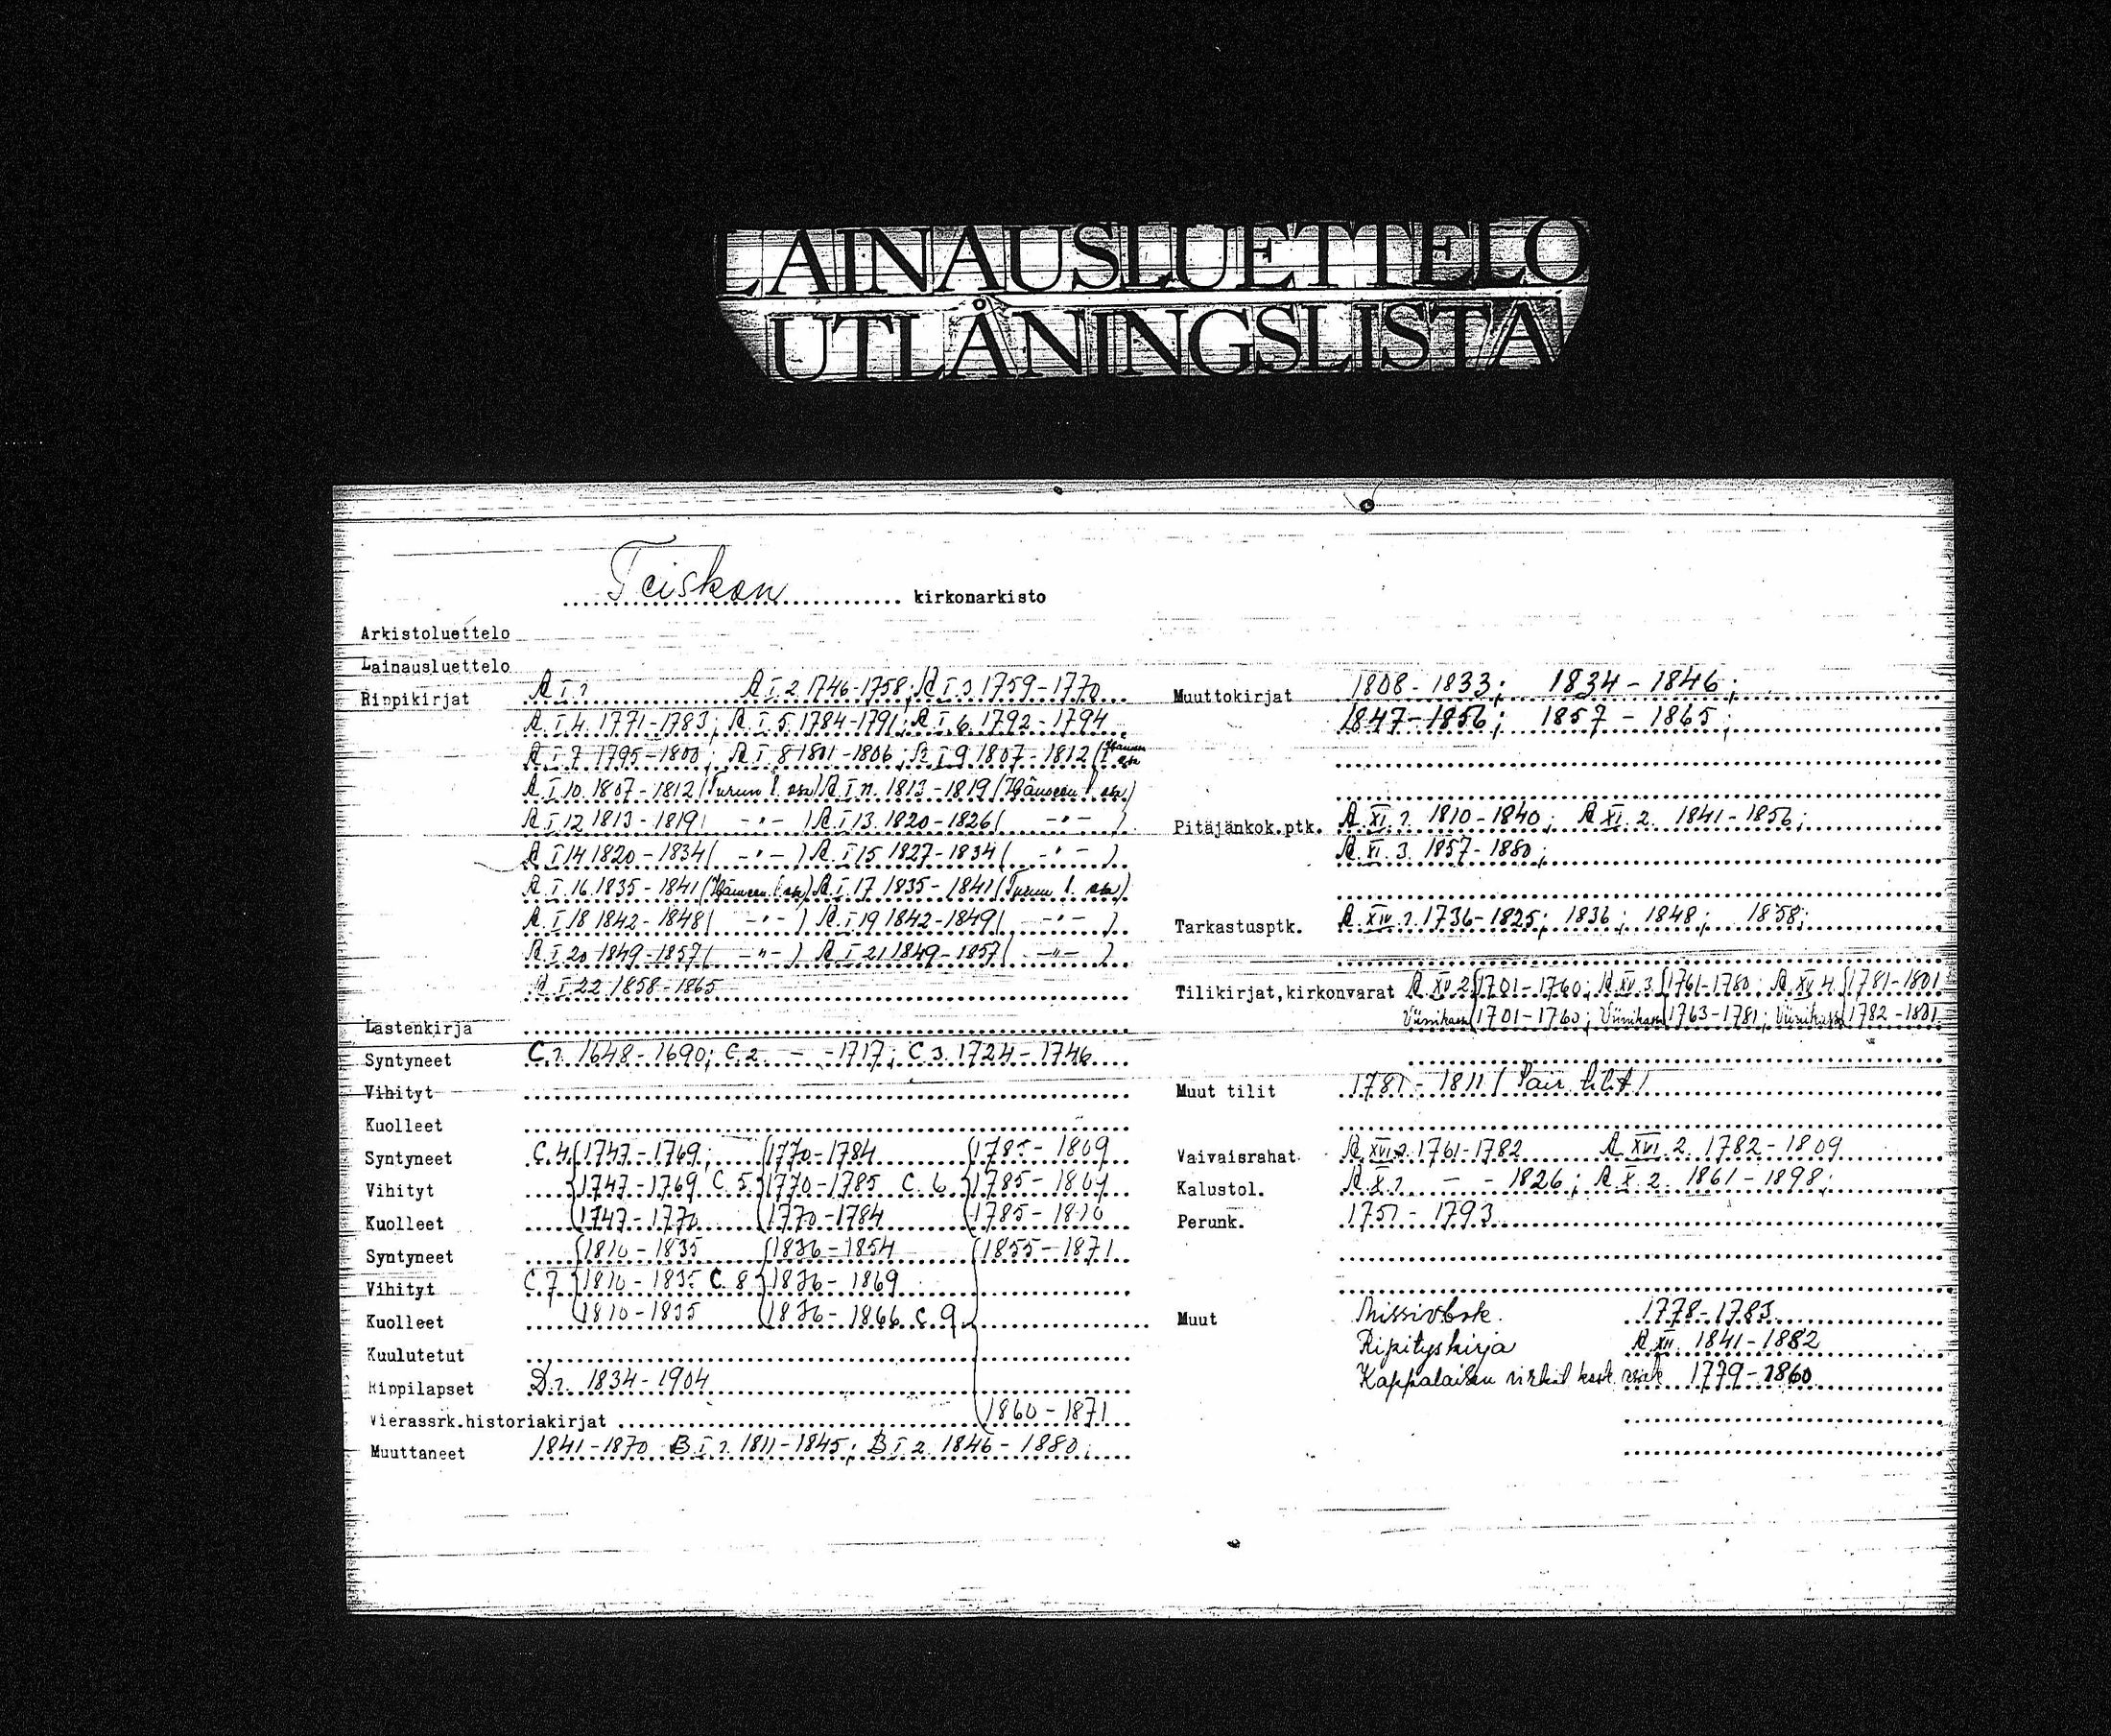 LAINAUSLUETTELO
UTLÅNINGSLISTA
Teiskon kirkonarkisto
Arkistoluettelo
Lainausluettelo
Rippikirjat A I.1 A I.2 1746-1758; A I.3 1759-1770
A I.4. 1771-1783; A I.5. 1784-1791; A I.6. 1792-1794
A I 7 1795-1800; A I 8 1801-1806; A I 9 1807-1812 (Hämeen l. osa
A I 10. 1807-1812 (Turun l. osa) A I 11. 1813-1819 (Hämeen l. osa)
A I 12 1813-1819 ( -"- ) A I 13. 1820-1826 ( -"- )
A I 14 1820-1834 ( -"- ) A I 15 1827-1834 ( -"- )
A I. 16. 1835-1841 (Hämeen l. osa) A I. 17 1835-1841 (Turun l. osa)
A I 18 1842-1848 ( -"- ) A I 19 1842-1849 ( -"- )
A I 20 1849-1857 ( -"- ) A I 21 1849-1857 ( -"- )
A I 22 1858-1865
Lastenkirja
Syntyneet C.1. 1648-1690; C.2. - -1717; C.3. 1724-1746
Vihityt
Kuolleet
Syntyneet C.4. (1747-1769; (1770-1784 (1785-1809
Vihityt 1747-1769 C.5. 1770-1785 C.6. 1785-1809
Kuolleet (1747-1770 (1770-1784 (1785-1810
Syntyneet (1810-1835 (1836-1854 (1855-1871
Vihityt C.7 1810-1835 C.8 1836-1869
Kuolleet (1810-1835 (1836-1866 C.9
Kuulutetut
Rippilapset D.1. 1834-1904
Vierassrk.historiakirjat (1860-1871
Muuttaneet 1841-1870 B I.1. 1811-1845; B I 2. 1846-1880;
Muuttokirjat 1808-1833; 1834-1846;
1847-1856; 1857-1865;
Pitäjänkok.ptk. A XI.1. 1810-1840; A XI. 2. 1841-1856;
A XI. 3. 1857-1880;
Tarkastusptk. A XIV.1. 1736-1825; 1836; 1848; 1858;
Tilikirjat,kirkonvarat A XV 2 (1701-1760; A XV 3 (1761-1780; A XV 4. (1781-1801
Viinikassa (1701-1760; Viinikassa (1763-1781; Viinikassa (1782-1801
Muut tilit 1781-1811 (Sair. tilit)
Vaivaisrahat A XVI.1. 1761-1782 A XVI 2. 1782-1809
Kalustol. A X.1. - - 1826; A X 2. 1861-1898;
Perunk. 1751-1793
Muut Missivbok. 1778-1783
Ripityskirja A XII. 1841-1882
Kappalaisen virkat. kosk. asiak 1779-1860